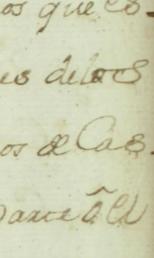 os que es-
es delos
os de Cas-
parte ã el